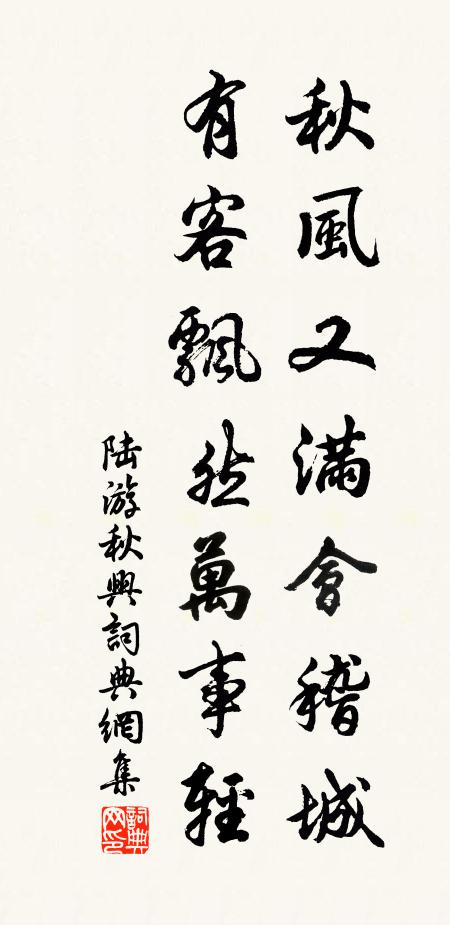 秋風又滿會稽城
有客飄然萬事輕
陆游秋興詞典網集
詞典网印